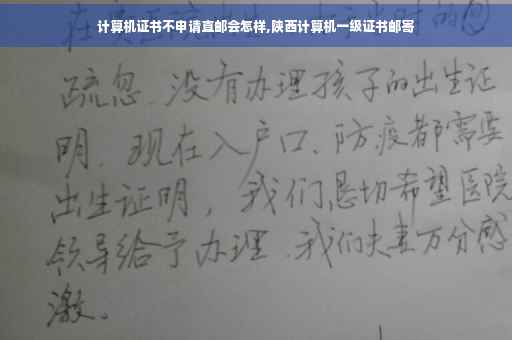 计算机证书不申请直邮会怎样,陕西计算机一级证书邮寄
疏忽、没有办理孩子的出生证
明、现在入户口、防疫都需要
出生证明，我们恳切希望医院
领导给予办理、我们夫妻万分感
激。